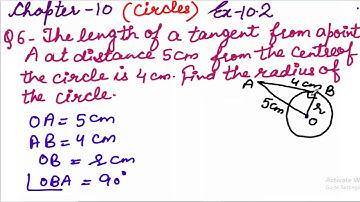 Chapter -10 (Circles) Ex-10.2
Q6- The length of a tangent from a point
A at distance 5cm from the centre of
the circle is 4cm. Find the radius of
the circle.
OA = 5cm
AB = 4cm
OB = r cm
∠OBA = 90°
A 4cm B
5cm r
O
Activate W